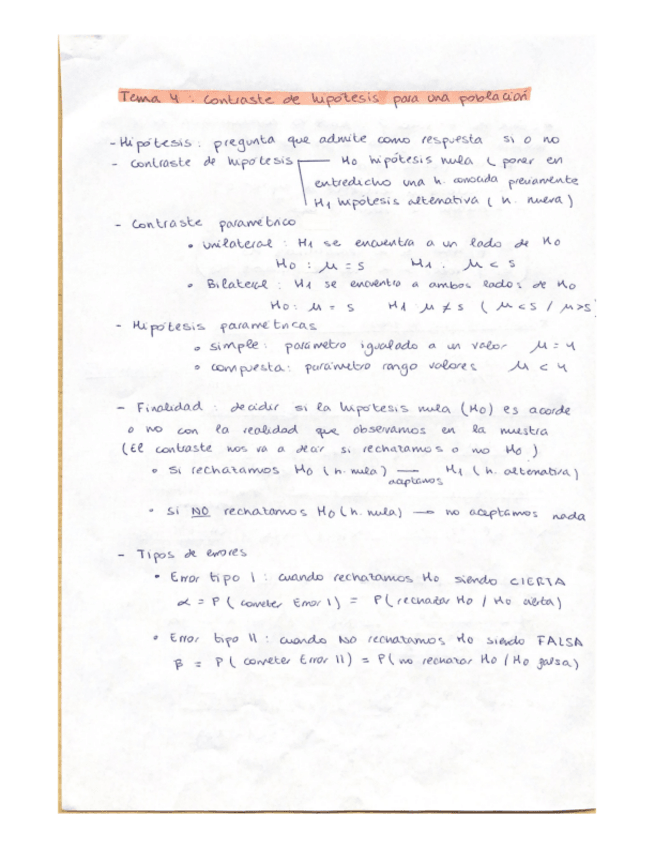 Tema 4 : contraste de hipótesis para una población
- Hipótesis : pregunta que admite como respuesta si o no
- contraste de hipotesis — H0 hipótesis nula ( poner en
entredicho una h. conocida previamente
H1 hipótesis alternativa ( h. nueva )
- Contraste paramétrico
• unilateral : H1 se encuentra a un lado de H0
H0 : μ = 5 H1 : μ < 5
• Bilateral : H1 se encuentra a ambos lados de H0
H0 : μ = 5 H1 μ ≠ 5 ( μ < 5 / μ > 5
- Hipótesis paramétricas
• simple : parámetro igualado a un valor μ = 4
• compuesta : parámetro rango valores μ < 4
- Finalidad : decidir si la hipótesis nula (H0) es acorde
o no con la realidad que observamos en la muestra
(El contraste nos va a decir si rechazamos o no H0 )
• si rechazamos H0 ( h. nula ) — aceptamos H1 ( h. alternativa )
• si NO rechazamos H0 ( h. nula ) → no aceptamos nada
- Tipos de errores
• Error tipo I : cuando rechazamos H0 siendo CIERTA
α = P ( cometer Error I ) = P ( rechazar H0 / H0 cierta )
• Error tipo II : cuando NO rechazamos H0 siendo FALSA
β = P ( cometer Error II ) = P ( no rechazar H0 / H0 falsa )